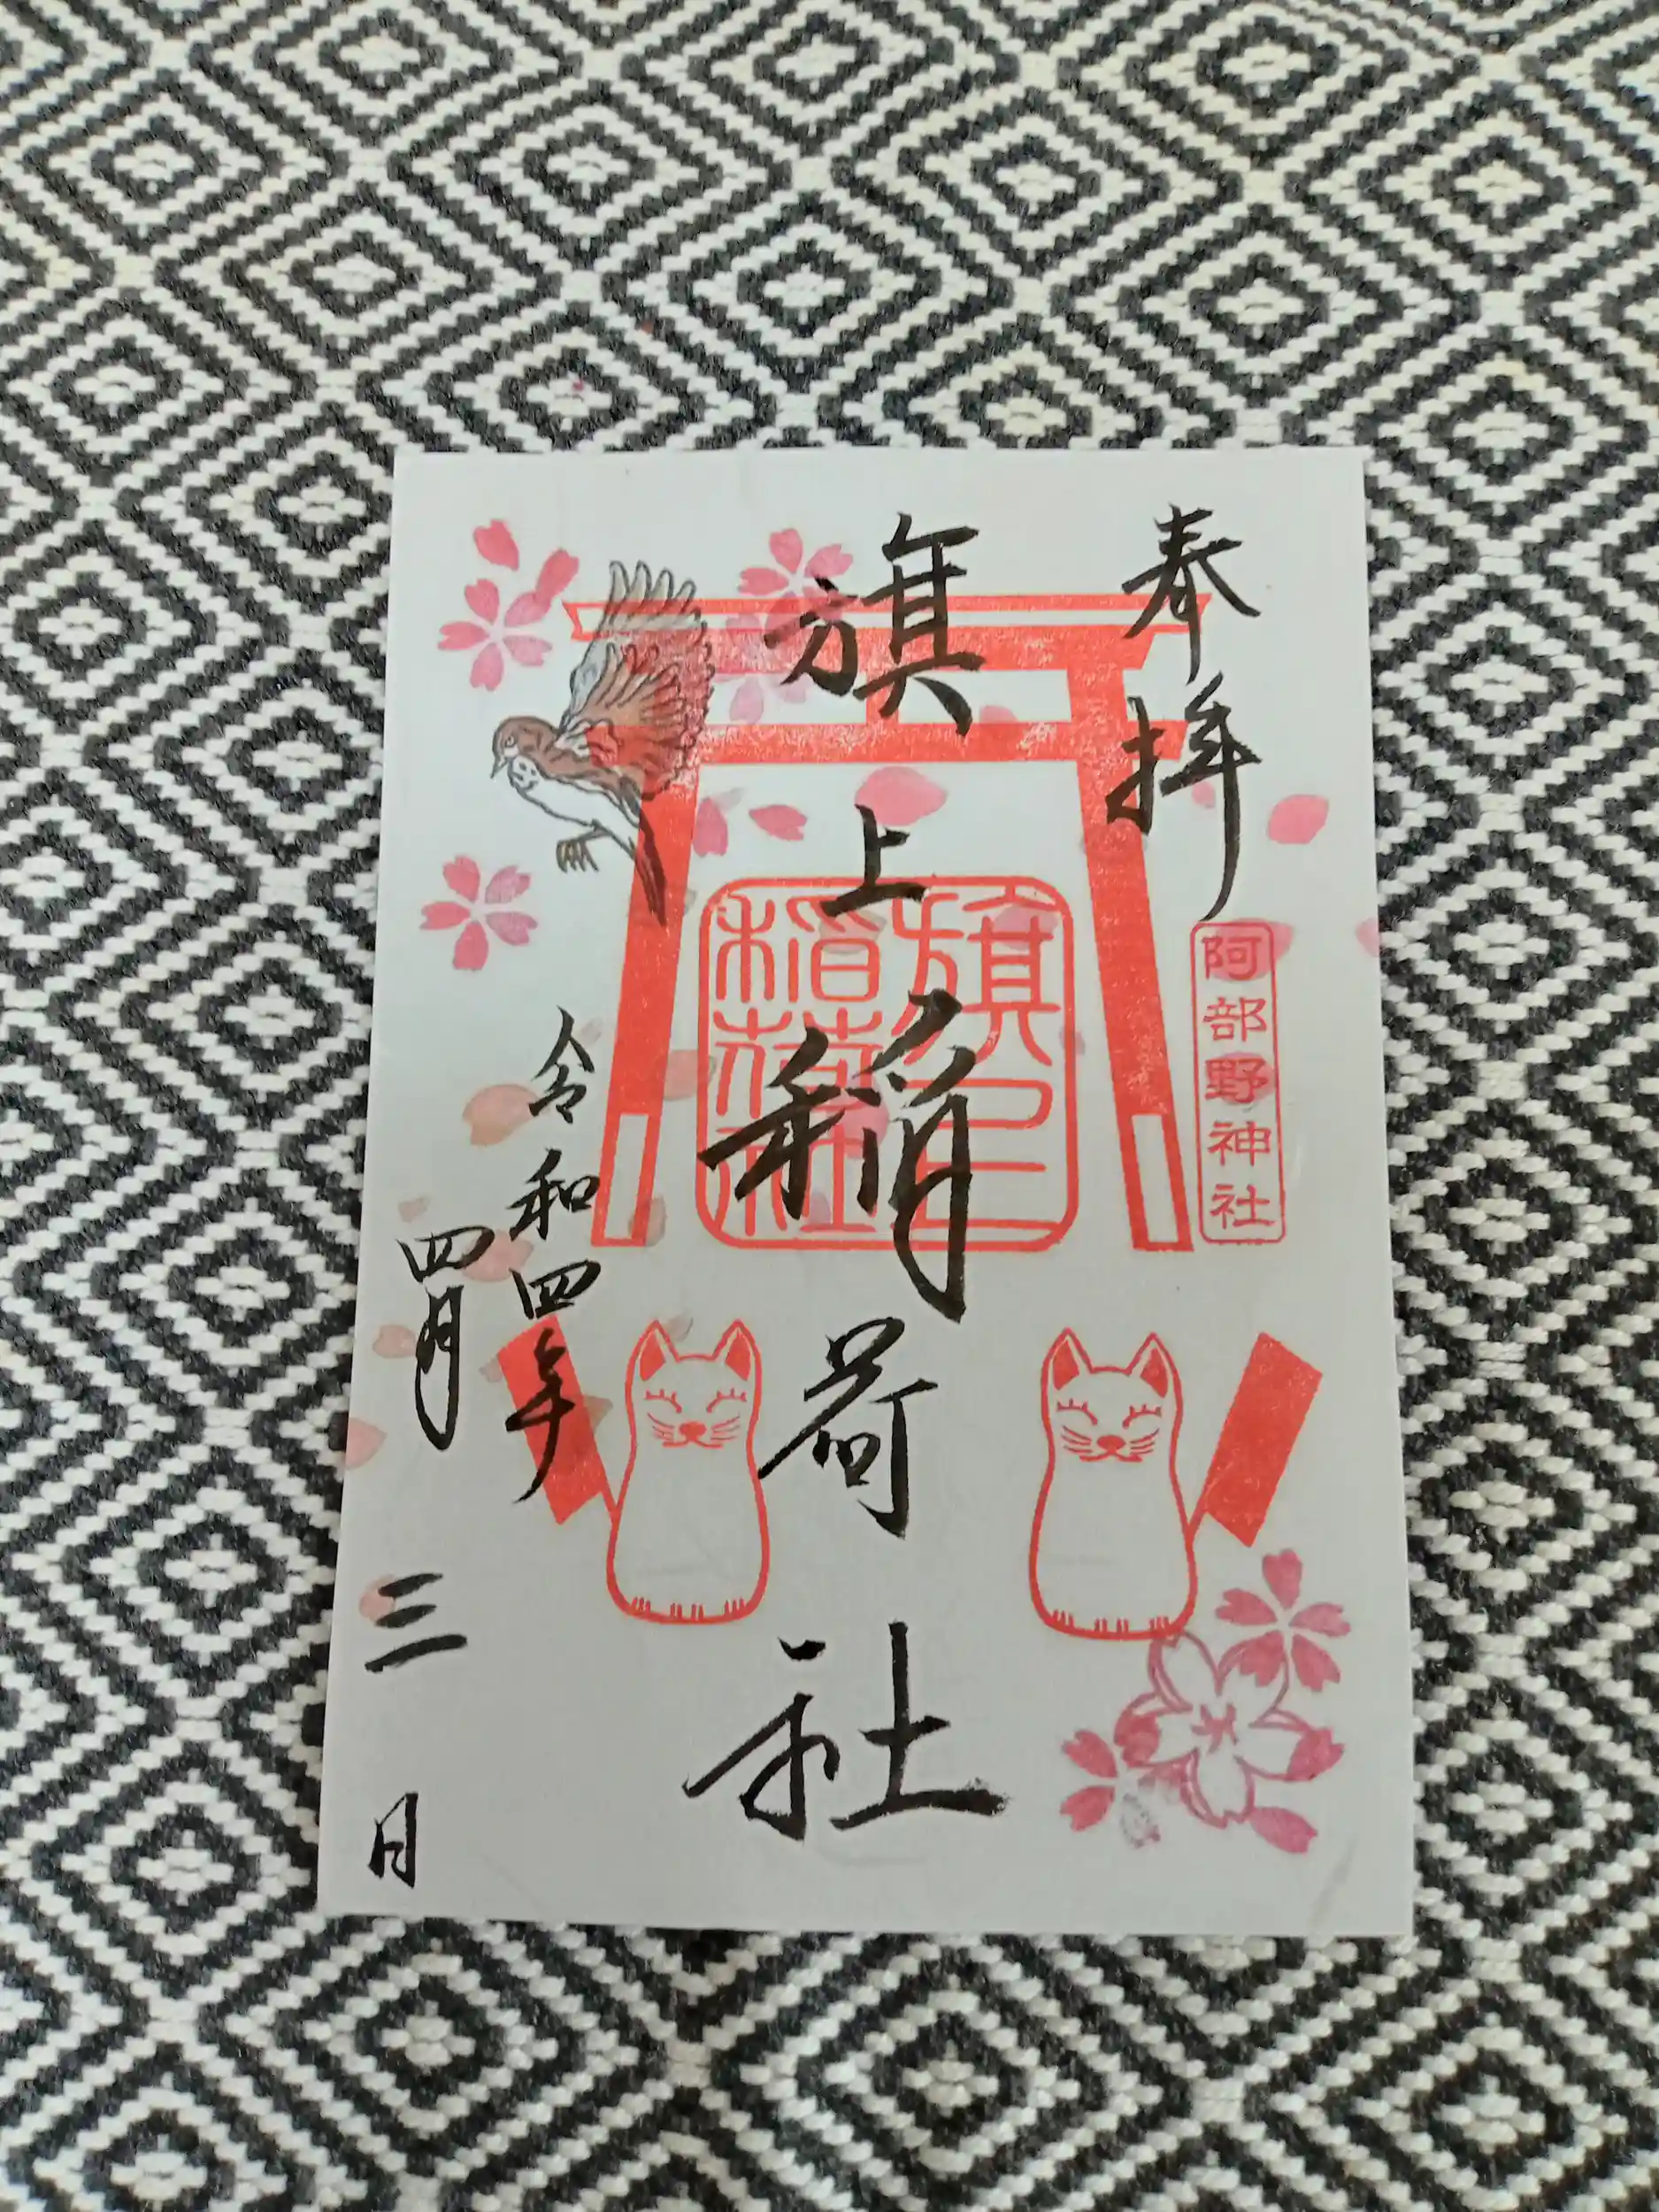 奉拝
阿部野神社
旗上稲荷社
旗上稲荷社
令和四年
四月三日